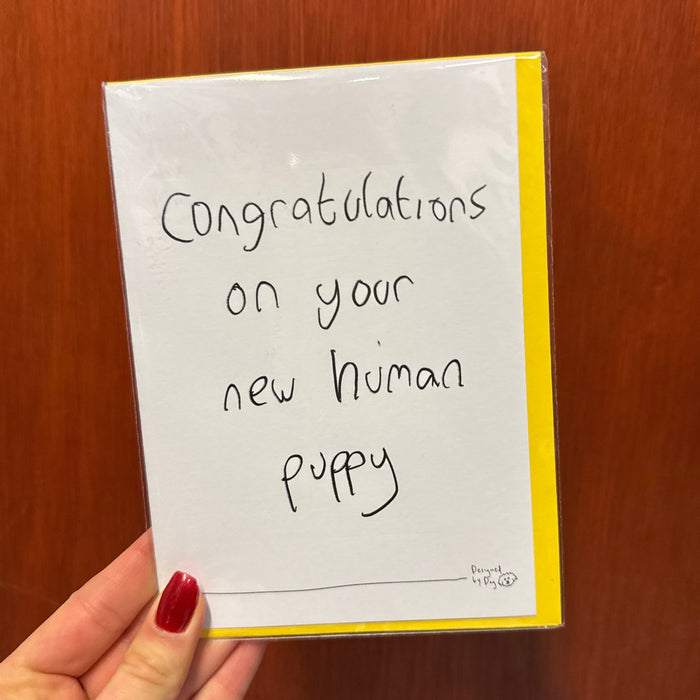 Congratulations
on your
new human
puppy
Designed
by Dog